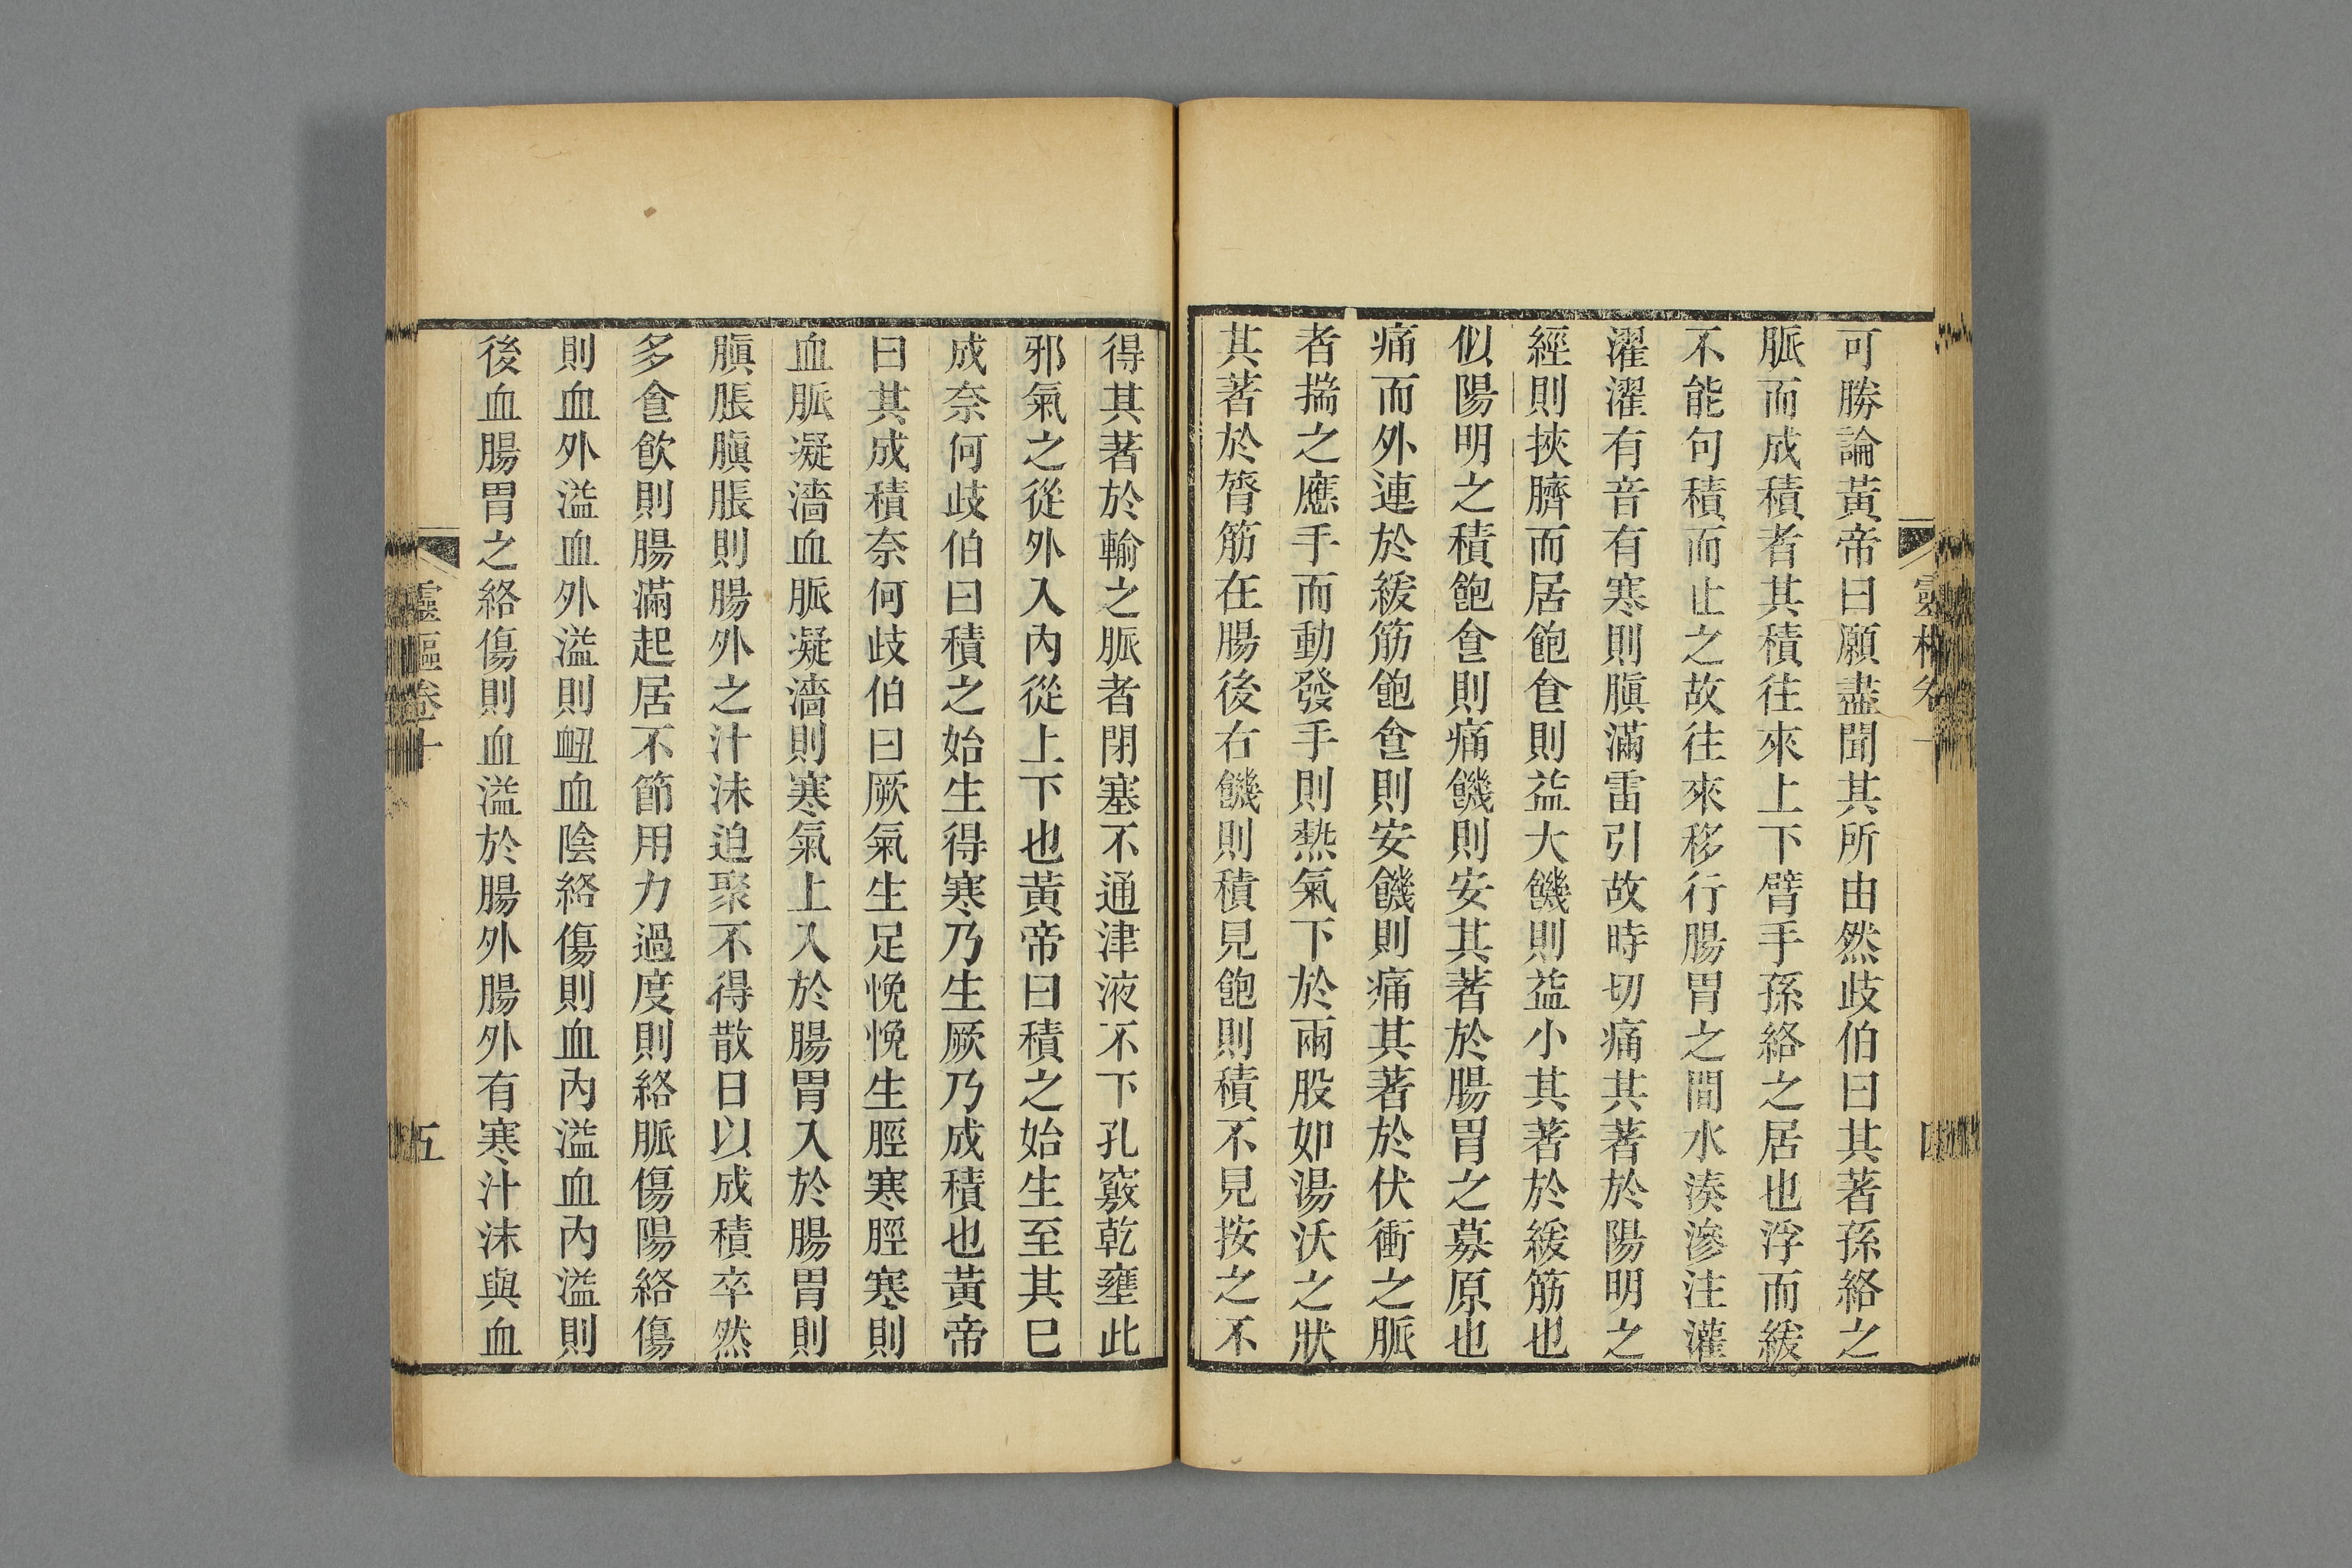 可勝論黃帝曰願盡聞其所由然歧伯曰其著孫絡之
脈而成積者其積往來上下臂手孫絡之居也浮而緩
不能句積而止之故往來移行腸胃之間水湊滲注灌
濯濯有音有寒則䐜滿雷引故時切痛其著於陽明之
經則挾臍而居飽食則益大饑則益小其著於緩筋也
似陽明之積飽食則痛饑則安其著於腸胃之募原也
痛而外連於緩筋飽食則安饑則痛其著於伏衝之脈
者揣之應手而動發手則熱氣下於兩股如湯沃之狀
其著於膂筋在腸後右饑則積見飽則積不見按之不
得其著於輸之脈者閉塞不通津液不下孔竅乾壅此
邪氣之從外入內從上下也黃帝曰積之始生至其已
成奈何歧伯曰積之始生得寒乃生厥乃成積也黃帝
曰其成積奈何歧伯曰厥氣生足悗悗生脛寒脛寒則
血脈凝濇血脈凝濇則寒氣上入於腸胃入於腸胃則
䐜脹䐜脹則腸外之汁沫迫聚不得散日以成積卒然
多食飲則腸滿起居不節用力過度則絡脈傷陽絡傷
則血外溢血外溢則衄血陰絡傷則血內溢血內溢則
後血腸胃之絡傷則血溢於腸外腸外有寒汁沫與血
靈樞卷十
五